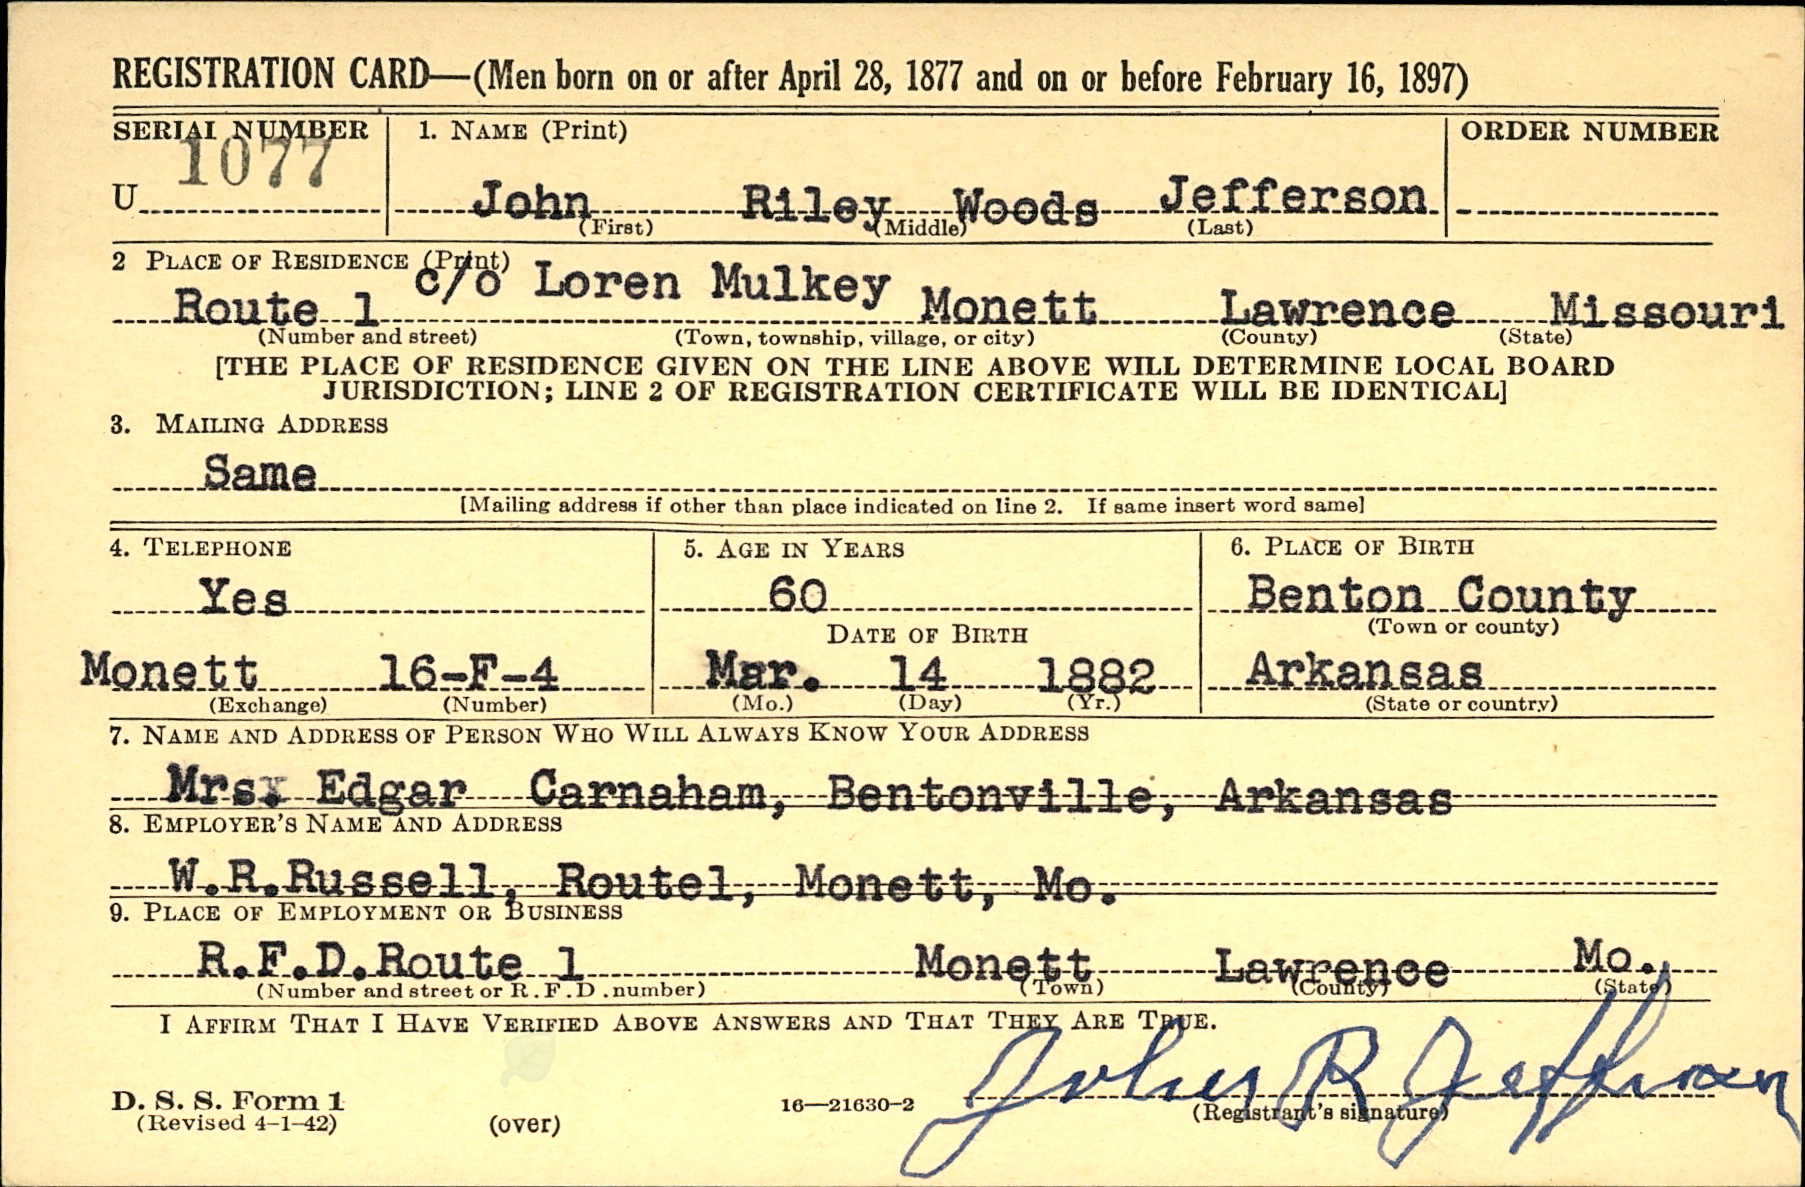 REGISTRATION CARD—(Men born on or after April 28, 1877 and on or before February 16, 1897)
SERIAL NUMBER 1. NAME (Print) ORDER NUMBER
1077
U John Riley Woods Jefferson
(First) (Middle) (Last)
2 PLACE OF RESIDENCE (Print)
c/o Loren Mulkey
Route 1 Monett Lawrence Missouri
(Number and street) (Town, township, village, or city) (County) (State)
[THE PLACE OF RESIDENCE GIVEN ON THE LINE ABOVE WILL DETERMINE LOCAL BOARD
JURISDICTION; LINE 2 OF REGISTRATION CERTIFICATE WILL BE IDENTICAL]
3. MAILING ADDRESS
Same
[Mailing address if other than place indicated on line 2. If same insert word same]
4. TELEPHONE 5. AGE IN YEARS 6. PLACE OF BIRTH
Yes 60 Benton County
DATE OF BIRTH (Town or county)
Monett 16-F-4 Mar. 14 1882 Arkansas
(Exchange) (Number) (Mo.) (Day) (Yr.) (State or country)
7. NAME AND ADDRESS OF PERSON WHO WILL ALWAYS KNOW YOUR ADDRESS
Mrs. Edgar Carnaham, Bentonville, Arkansas
8. EMPLOYER'S NAME AND ADDRESS
W.R.Russell, Route1, Monett, Mo.
9. PLACE OF EMPLOYMENT OR BUSINESS
R.F.D.Route 1 Monett Lawrence Mo.
(Number and street or R.F.D. number) (Town) (County) (State)
I AFFIRM THAT I HAVE VERIFIED ABOVE ANSWERS AND THAT THEY ARE TRUE.
John R Jefferson
D. S. S. Form 1 16—21630-2 (Registrant's signature)
(Revised 4-1-42) (over)